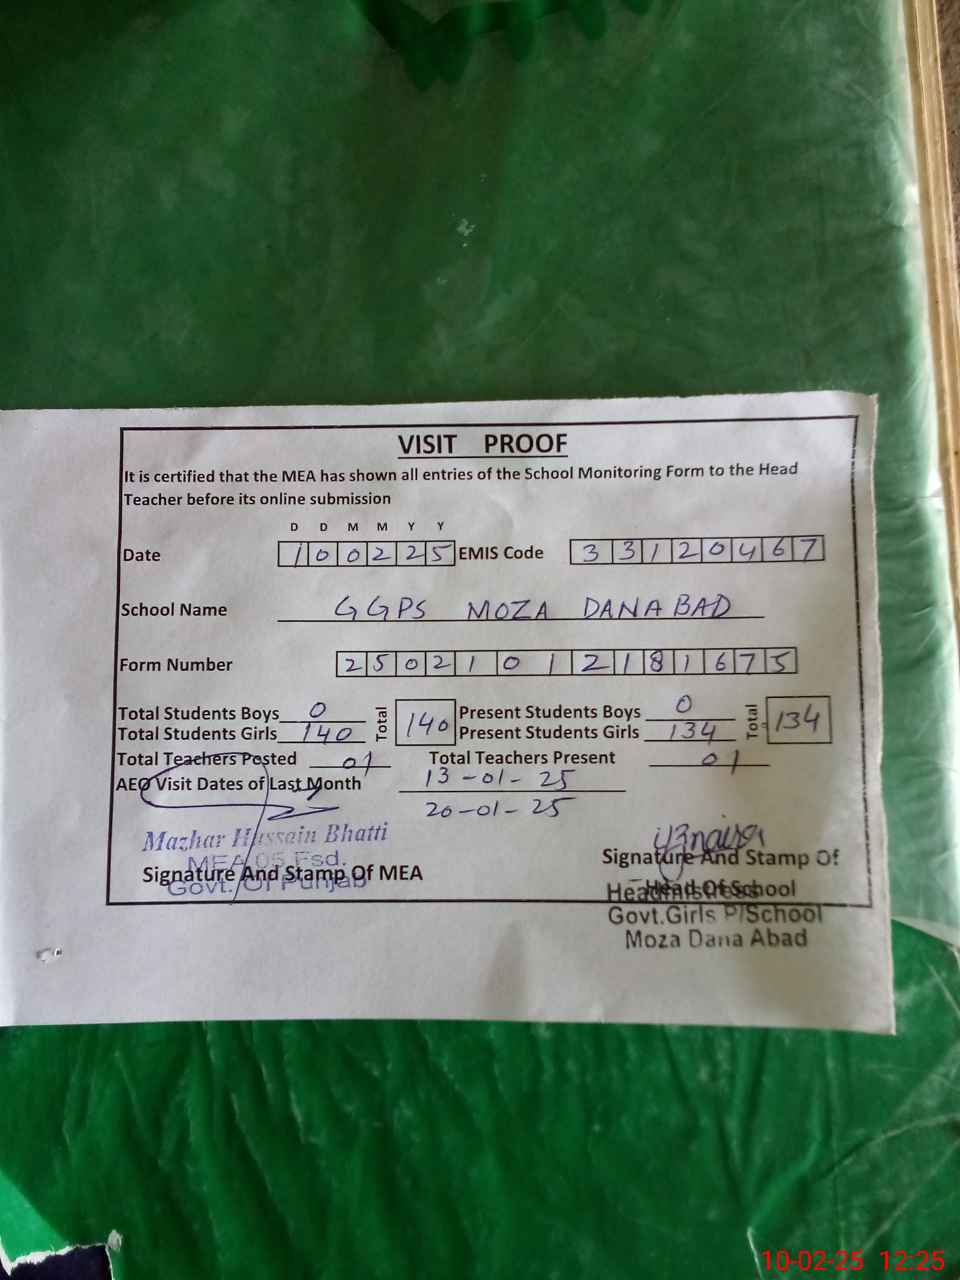 VISIT PROOF
It is certified that the MEA has shown all entries of the School Monitoring Form to the Head
Teacher before its online submission
D D M M Y Y
Date 100225 EMIS Code 33120467
School Name GGPS MOZA DANABAD
Form Number 25021012181675
Total Students Boys 0 Total 140 Present Students Boys 0 Total 134
Total Students Girls 140 Present Students Girls 134
Total Teachers Posted 01 Total Teachers Present 01
AEO Visit Dates of Last Month 13-01-25
20-01-25
Mazhar Hussain Bhatti
MEA 05 Fsd.
Govt. Of Punjab
Signature And Stamp Of MEA
Signature And Stamp Of
Head Of School
Headmistress
Govt.Girls P/School
Moza Dana Abad
10-02-25 12:25